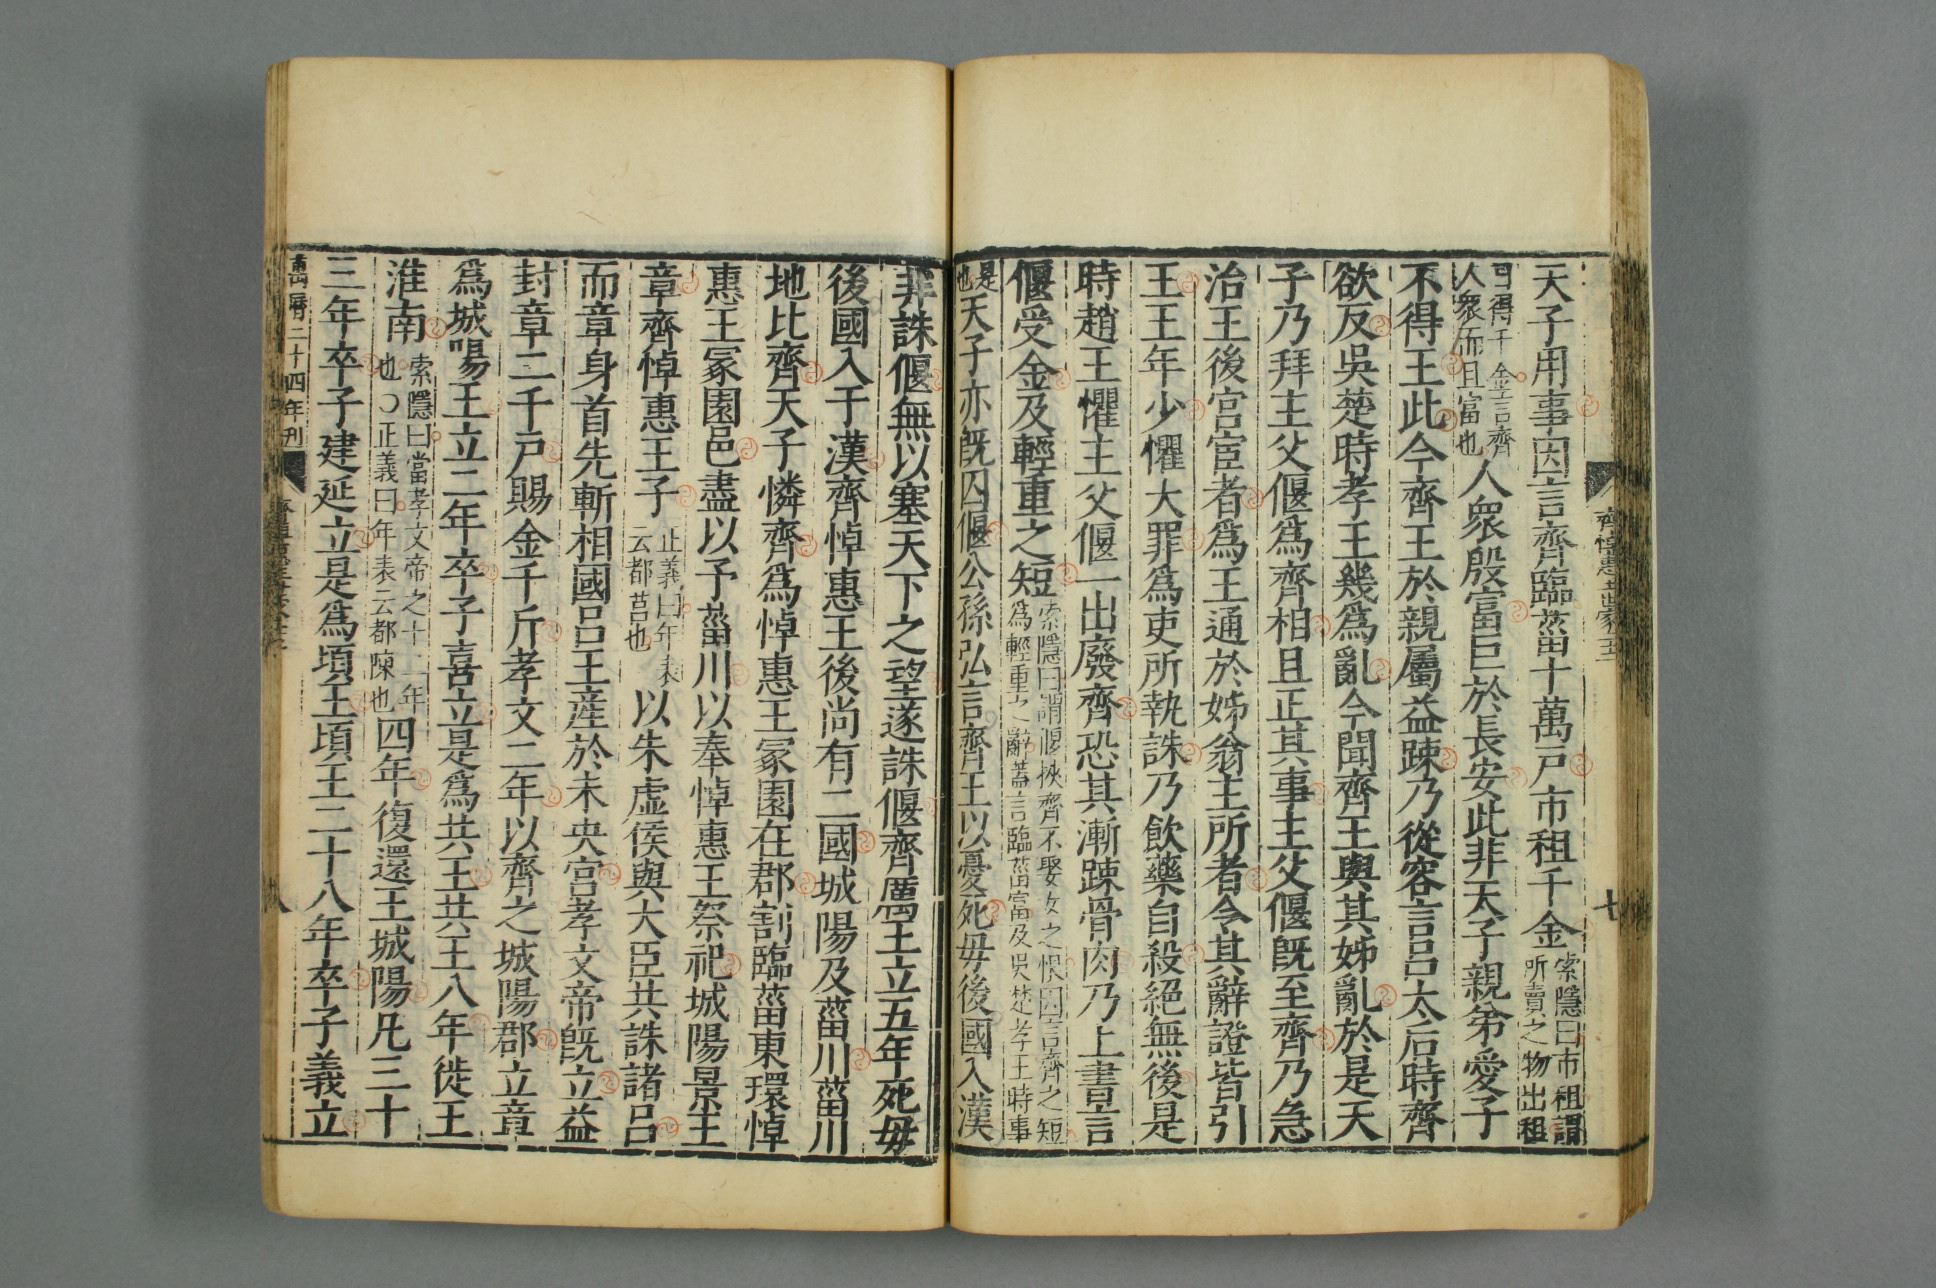 齊悼惠世家五二
七
天子用事因言齊臨菑十萬戶市租千金索隱曰市租謂所賣之物出租
日得千金言齊人衆而且富也人衆殷富巨於長安此非天子親弟愛子
不得王此今齊王於親屬益踈乃從容言呂太后時齊
欲反吳楚時孝王幾爲亂今聞齊王與其姊亂於是天
子乃拜主父偃爲齊相且正其事主父偃既至齊乃急
治王後宮宦者爲王通於姊翁主所者令其辭證皆引
王王年少懼大罪爲吏所執誅乃飲藥自殺絕無後是
時趙王懼主父偃一出廢齊恐其漸踈骨肉乃上書言
偃受金及輕重之短索隱曰謂偃挾齊不娶女之恨因言齊之短爲輕重之辭蓋言臨菑富及吳楚孝王時事
是也天子亦既囚偃公孫弘言齊王以憂死毋後國入漢
非誅偃無以塞天下之望遂誅偃齊厲王立五年死毋
後國入于漢齊悼惠王後尚有二國城陽及菑川菑川
地比齊天子憐齊爲悼惠王冢園在郡割臨菑東環悼
惠王冢園邑盡以予菑川以奉悼惠王祭祀城陽景王
章齊悼惠王子正義曰年表云都莒也以朱虛侯與大臣共誅諸呂
而章身首先斬相國呂王產於未央宮孝文帝既立益
封章二千戶賜金千斤孝文二年以齊之城陽郡立章
爲城陽王立二年卒子喜立是爲共王共王八年徙王
淮南索隱曰當孝文帝之十二年也○正義曰年表云都陳也四年復還王城陽凡三十
三年卒子建延立是爲頃王頃王二十八年卒子義立
萬曆二十四年刊
八